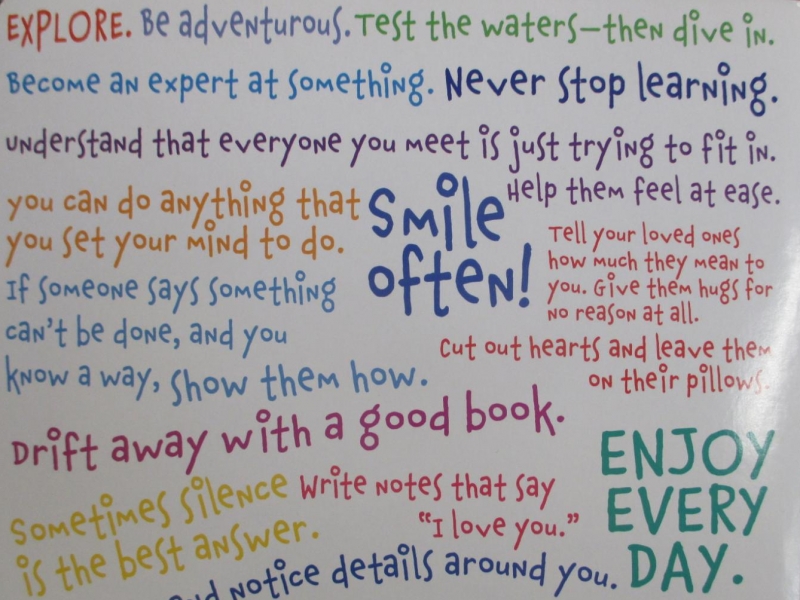 EXPLORE. Be adventurous. Test the waters—then dive in.
Become an expert at something. Never stop learning.
Understand that everyone you meet is just trying to fit in.
Help them feel at ease.
You can do anything that
you set your mind to do.
Smile
often!
Tell your loved ones
how much they mean to
you. Give them hugs for
no reason at all.
If someone says something
can't be done, and you
know a way, show them how.
Cut out hearts and leave them
on their pillows.
Drift away with a good book.
ENJOY
EVERY
DAY.
Sometimes silence
is the best answer.
Write notes that say
"I love you."
notice details around you.